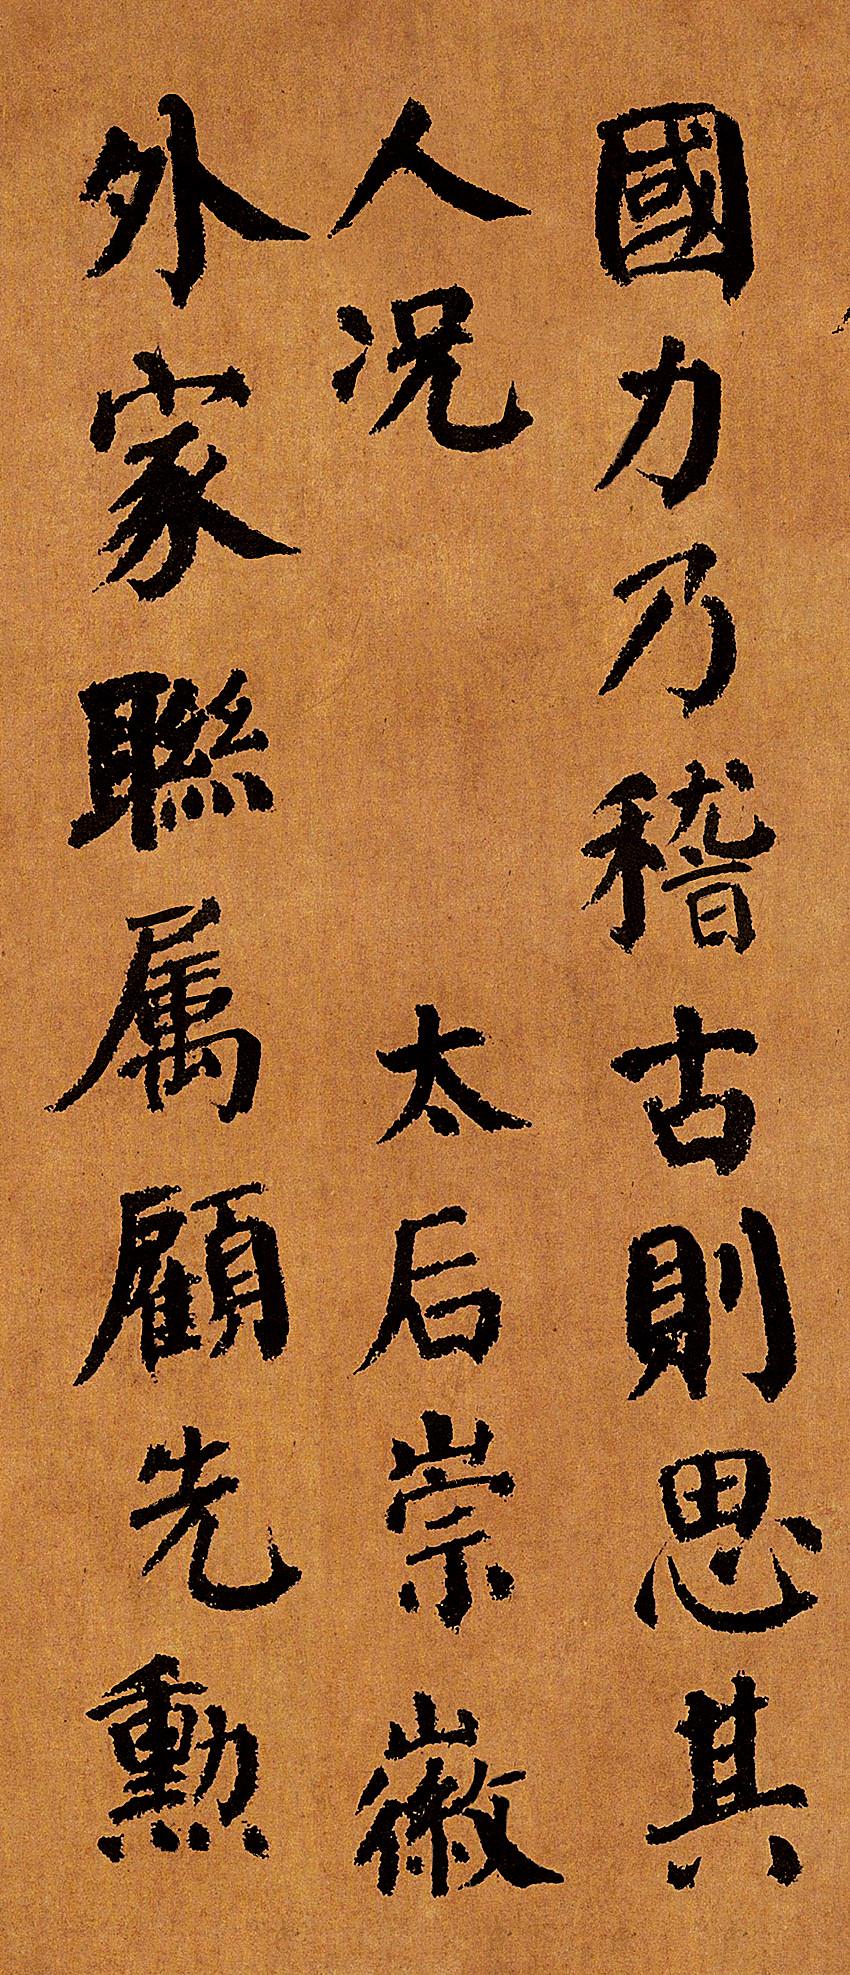 國力乃稽古則思其
人况太后崇徽
外家聯属顧先勲